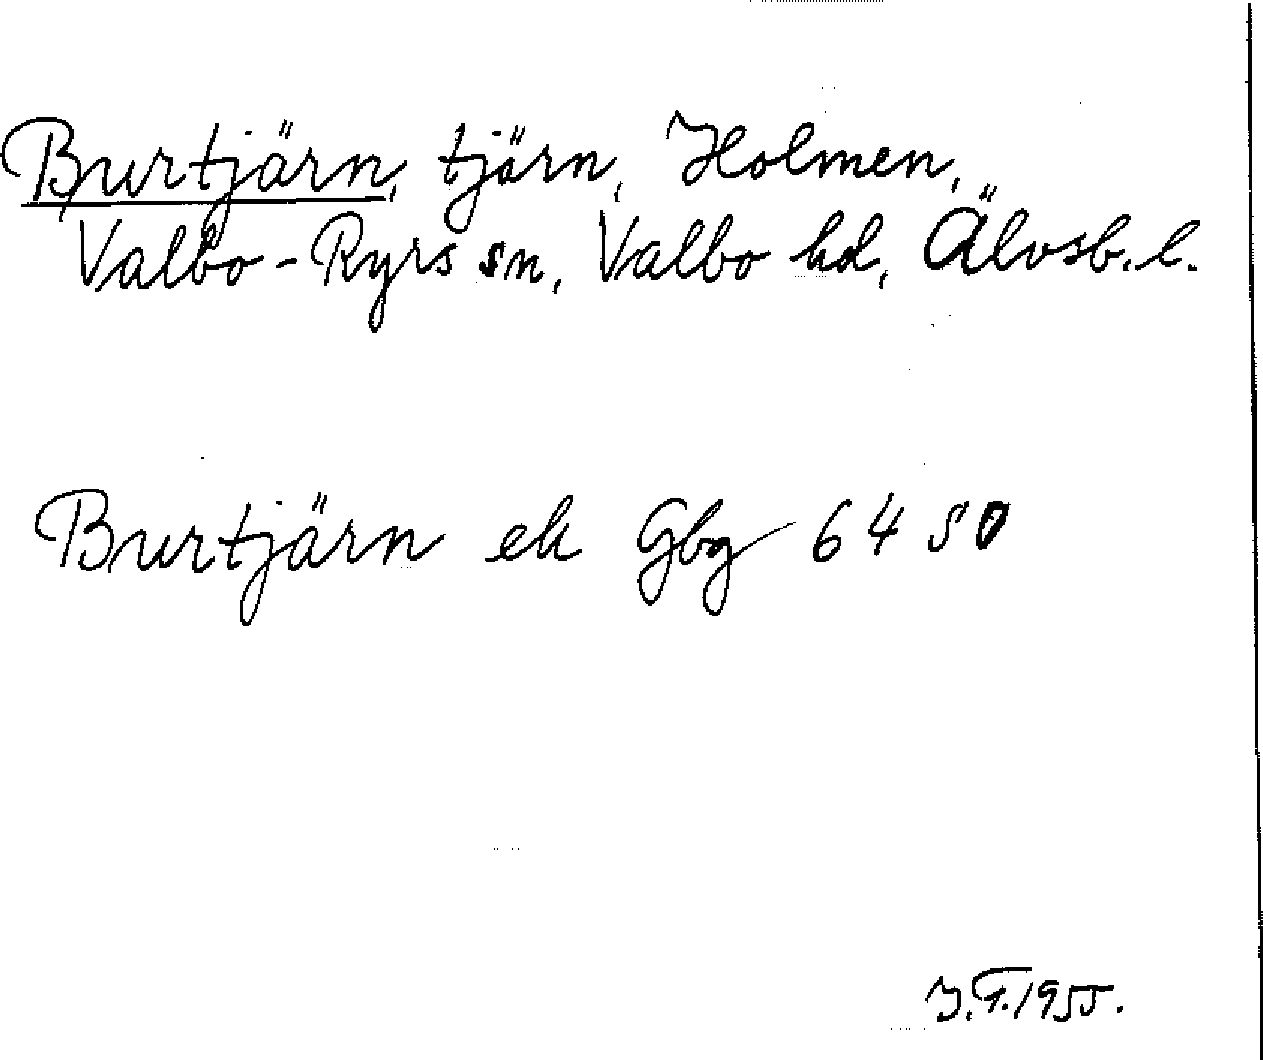 Burtjärn, tjärn, Holmen,
Valbo-Ryrs sn, Valbo hd, Älvsb. l.
Burtjärn ek Gbg 64 S0
J.F. 1955.